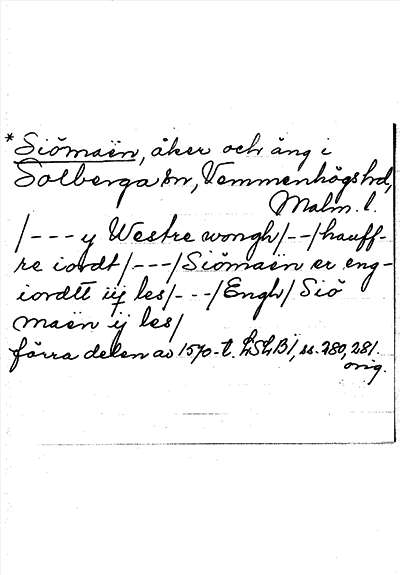 *Siömaën, åker och äng i
Solberga sn, Vemmenhögs hd,
Malm. l.
/--- y Westre wongh/--/hauff-
re iordt/---/Siömaën er eng-
iordtt iij les/---/Engh/ Siö
maën ij les/
förra delen av 1570-t. LSLB I, ss. 280, 281.
orig.